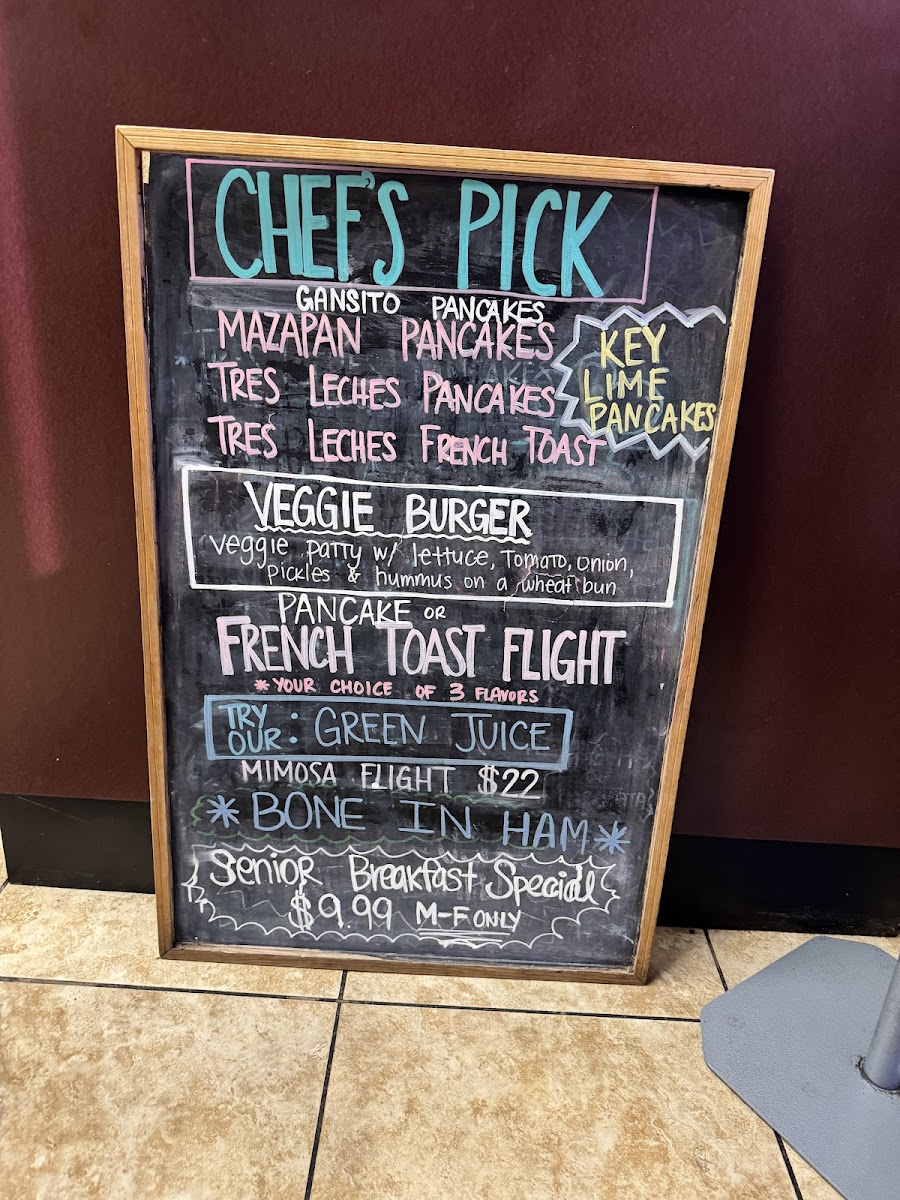 CHEF'S PICK
GANSITO PANCAKES
MAZAPAN PANCAKES
TRES LECHES PANCAKES
TRES LECHES FRENCH TOAST
KEY
LIME
PANCAKES
VEGGIE BURGER
veggie patty w/ lettuce, Tomato, onion,
pickles & hummus on a wheat bun
PANCAKE OR
FRENCH TOAST FLIGHT
*YOUR CHOICE OF 3 FLAVORS
TRY
OUR: GREEN JUICE
MIMOSA FLIGHT $22
* BONE IN HAM *
Senior Breakfast Special
$9.99 M-F ONLY